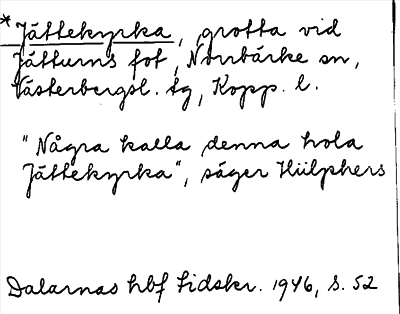 *Jättekyrka, grotta vid
Jätturns fot, Norrbärke sn,
Västerbergsl. tg, Kopp. l.
"Några kalla denna hola
Jättekyrka", säger Hülphers
Dalarnas hbf tidskr. 1946, s. 52